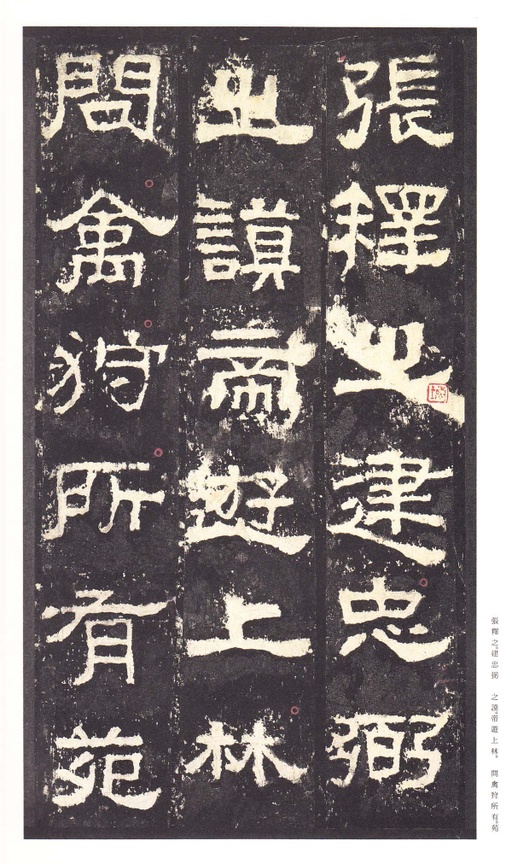 張釋之建忠弼
之謨帝遊上林
問禽狩所有苑
張釋之建忠弼 之謨帝遊上林 問禽狩所有苑